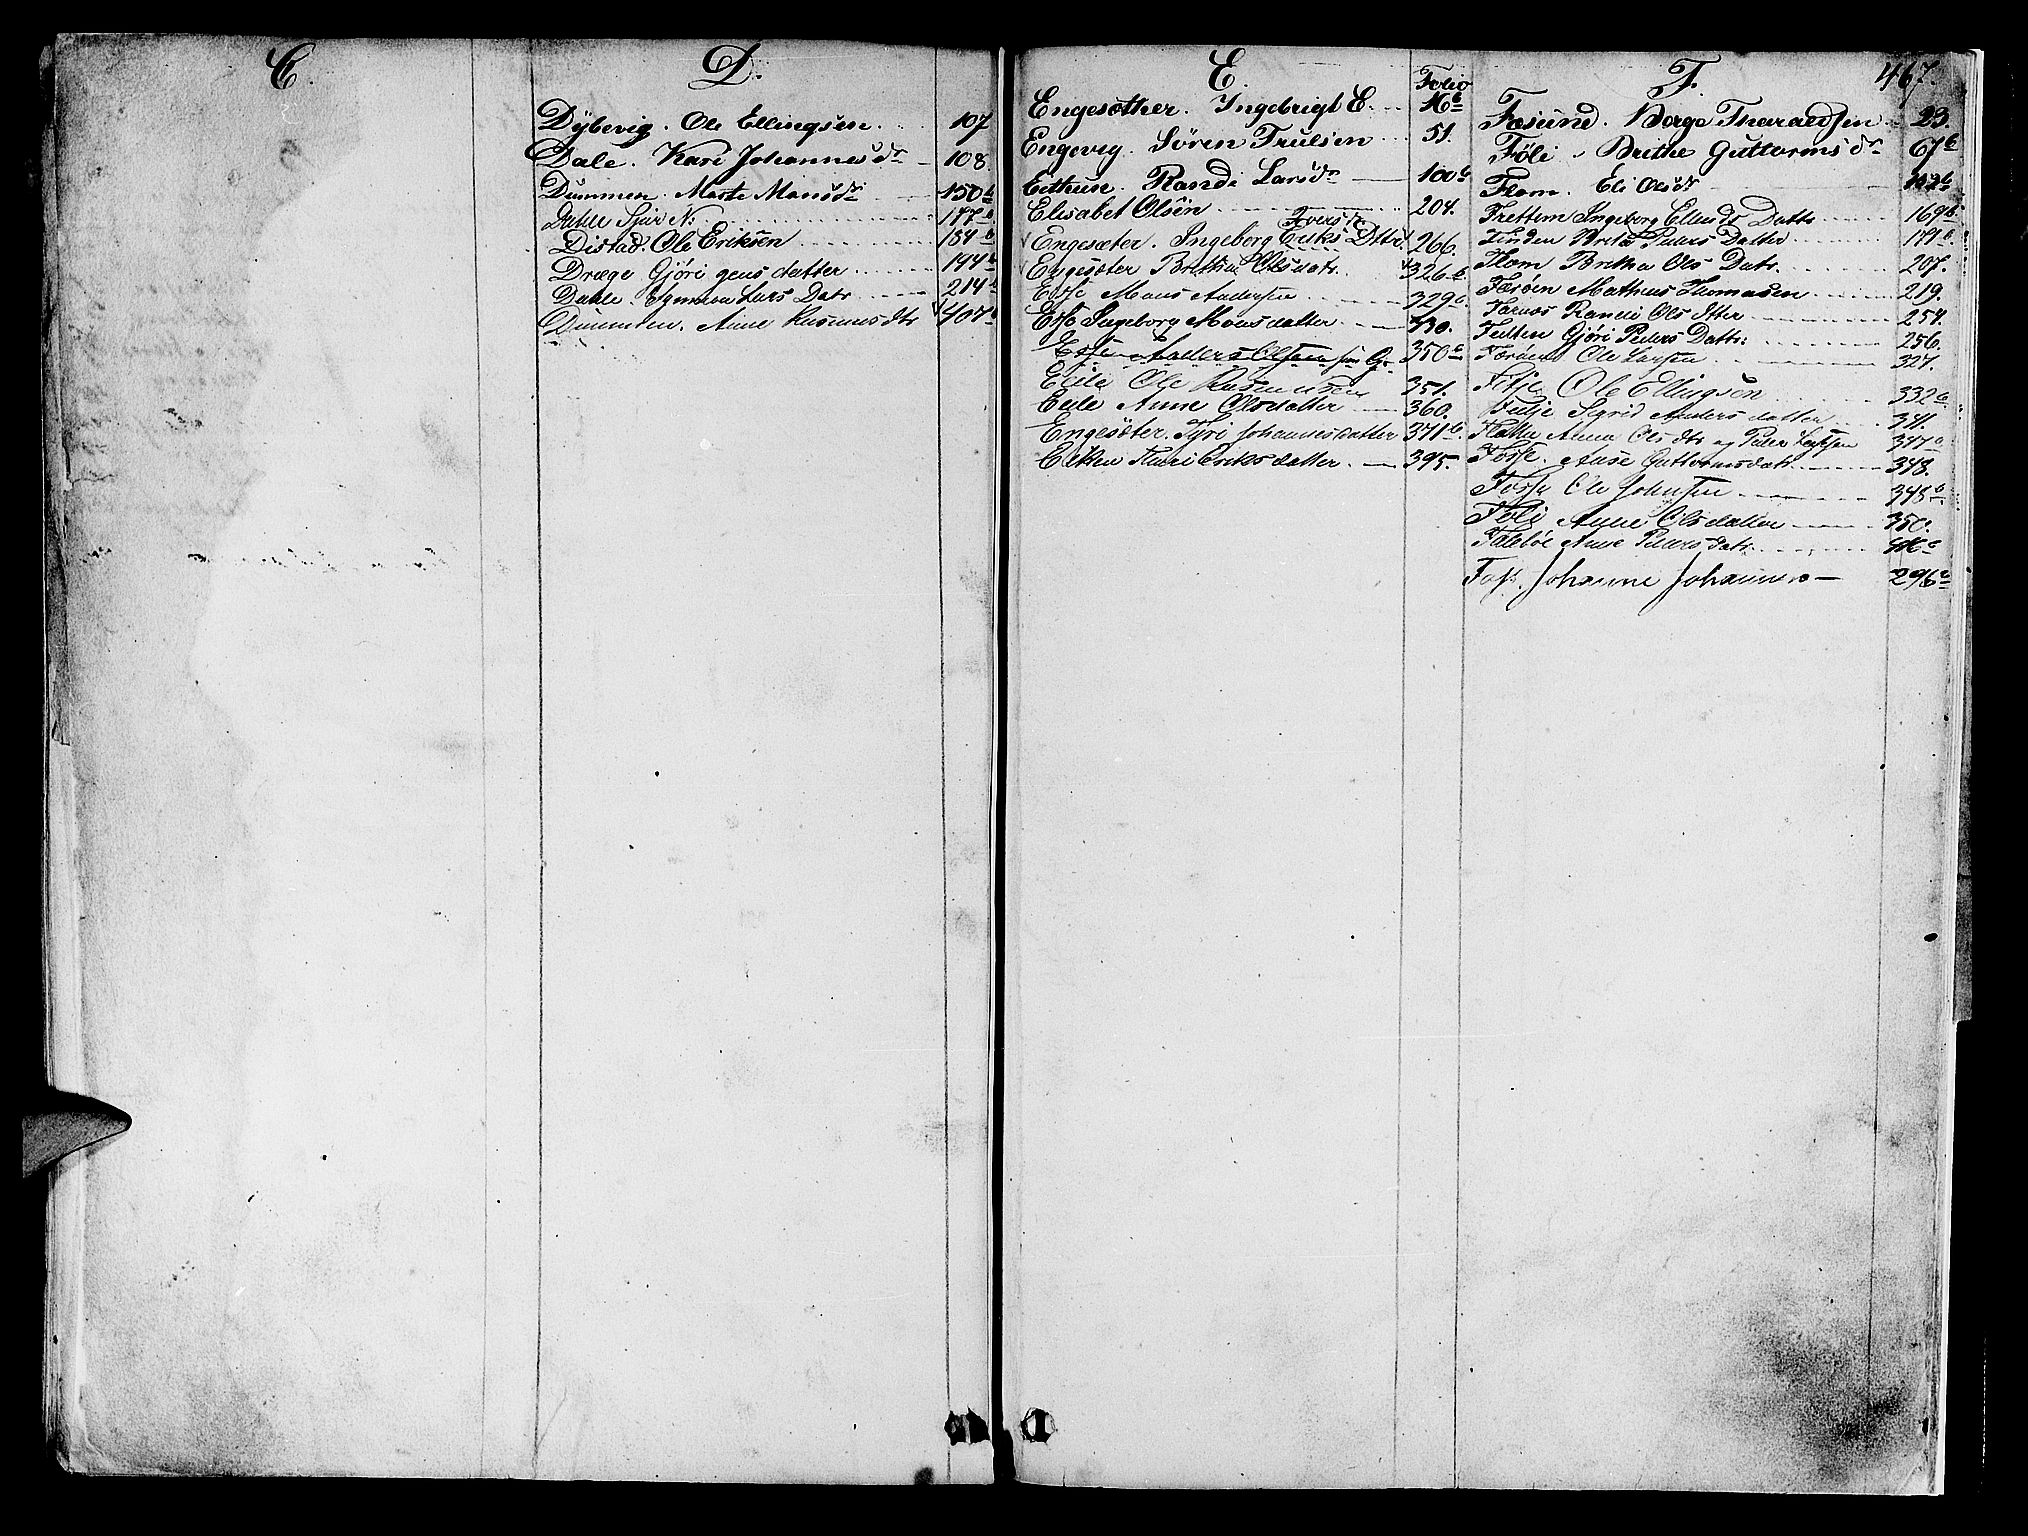 C.
D.
Dybevig. Ole Ellingsen 107
Dale. Kari Johannesdr 108.
Dummen. Marte Monsdr 150b
Dahle Sjur N: 177b
Distad. Ole Eriksen 184b
Dræge Gjöri datter 194b
Dahle. Synneva Lars Datr 214b
Dummen. Anne Rasmusdtr 407b
E.
Folio
Engesæther. Ingebrigt E. 16b
Engevig. Sören Trulsen 51.
Eithun. Randi Larsdr 100b
Elisabet Olsön 204.
Iversdr
Engesæter. Ingeborg Eriks Dttr. 266.
Engesæter Brithe Olsdatr. 326b
Esse Mons Andersen 329b
Esse Ingeborg Monsdatter 330.
Esse Anders Olsen 350b
Eide Ole Rasmussen 351.
Eide Anne Olsdatter 360.
Engesæter. Tyri Johannesdatter 371b.
Eiken Thuri Eriksdatter 395.
467.
F.
Fæsund. Börge Tharaldsen 23
Föli. Brithe Guttormsdr 67b
Flom. Eli Olsdr
Frettem Ingeborg Ellends Dattr 169b.
Finden Brita Peders Datter 171b.
Flom Britha Ols Datr. 207.
Færöen Matheus Thomasen 219.
Farnæs Randi Ols dtter 254.
Fetten Gjöri Peders Dattr: 256.
Færöen Ole Larsen 327.
Fitje Ole Ellingson 332b
Feitje Sigrid Andersdatter 341.
Flatten Anna Olsdtr og Peder 347b
Fosse. Anne Guttormsdatr. 348.
Fosse Ole Johnsen 348b
Föli Anne Olsdatter 350.
Anne Pedersdatr.
Foss. Johanne Johannes 296b